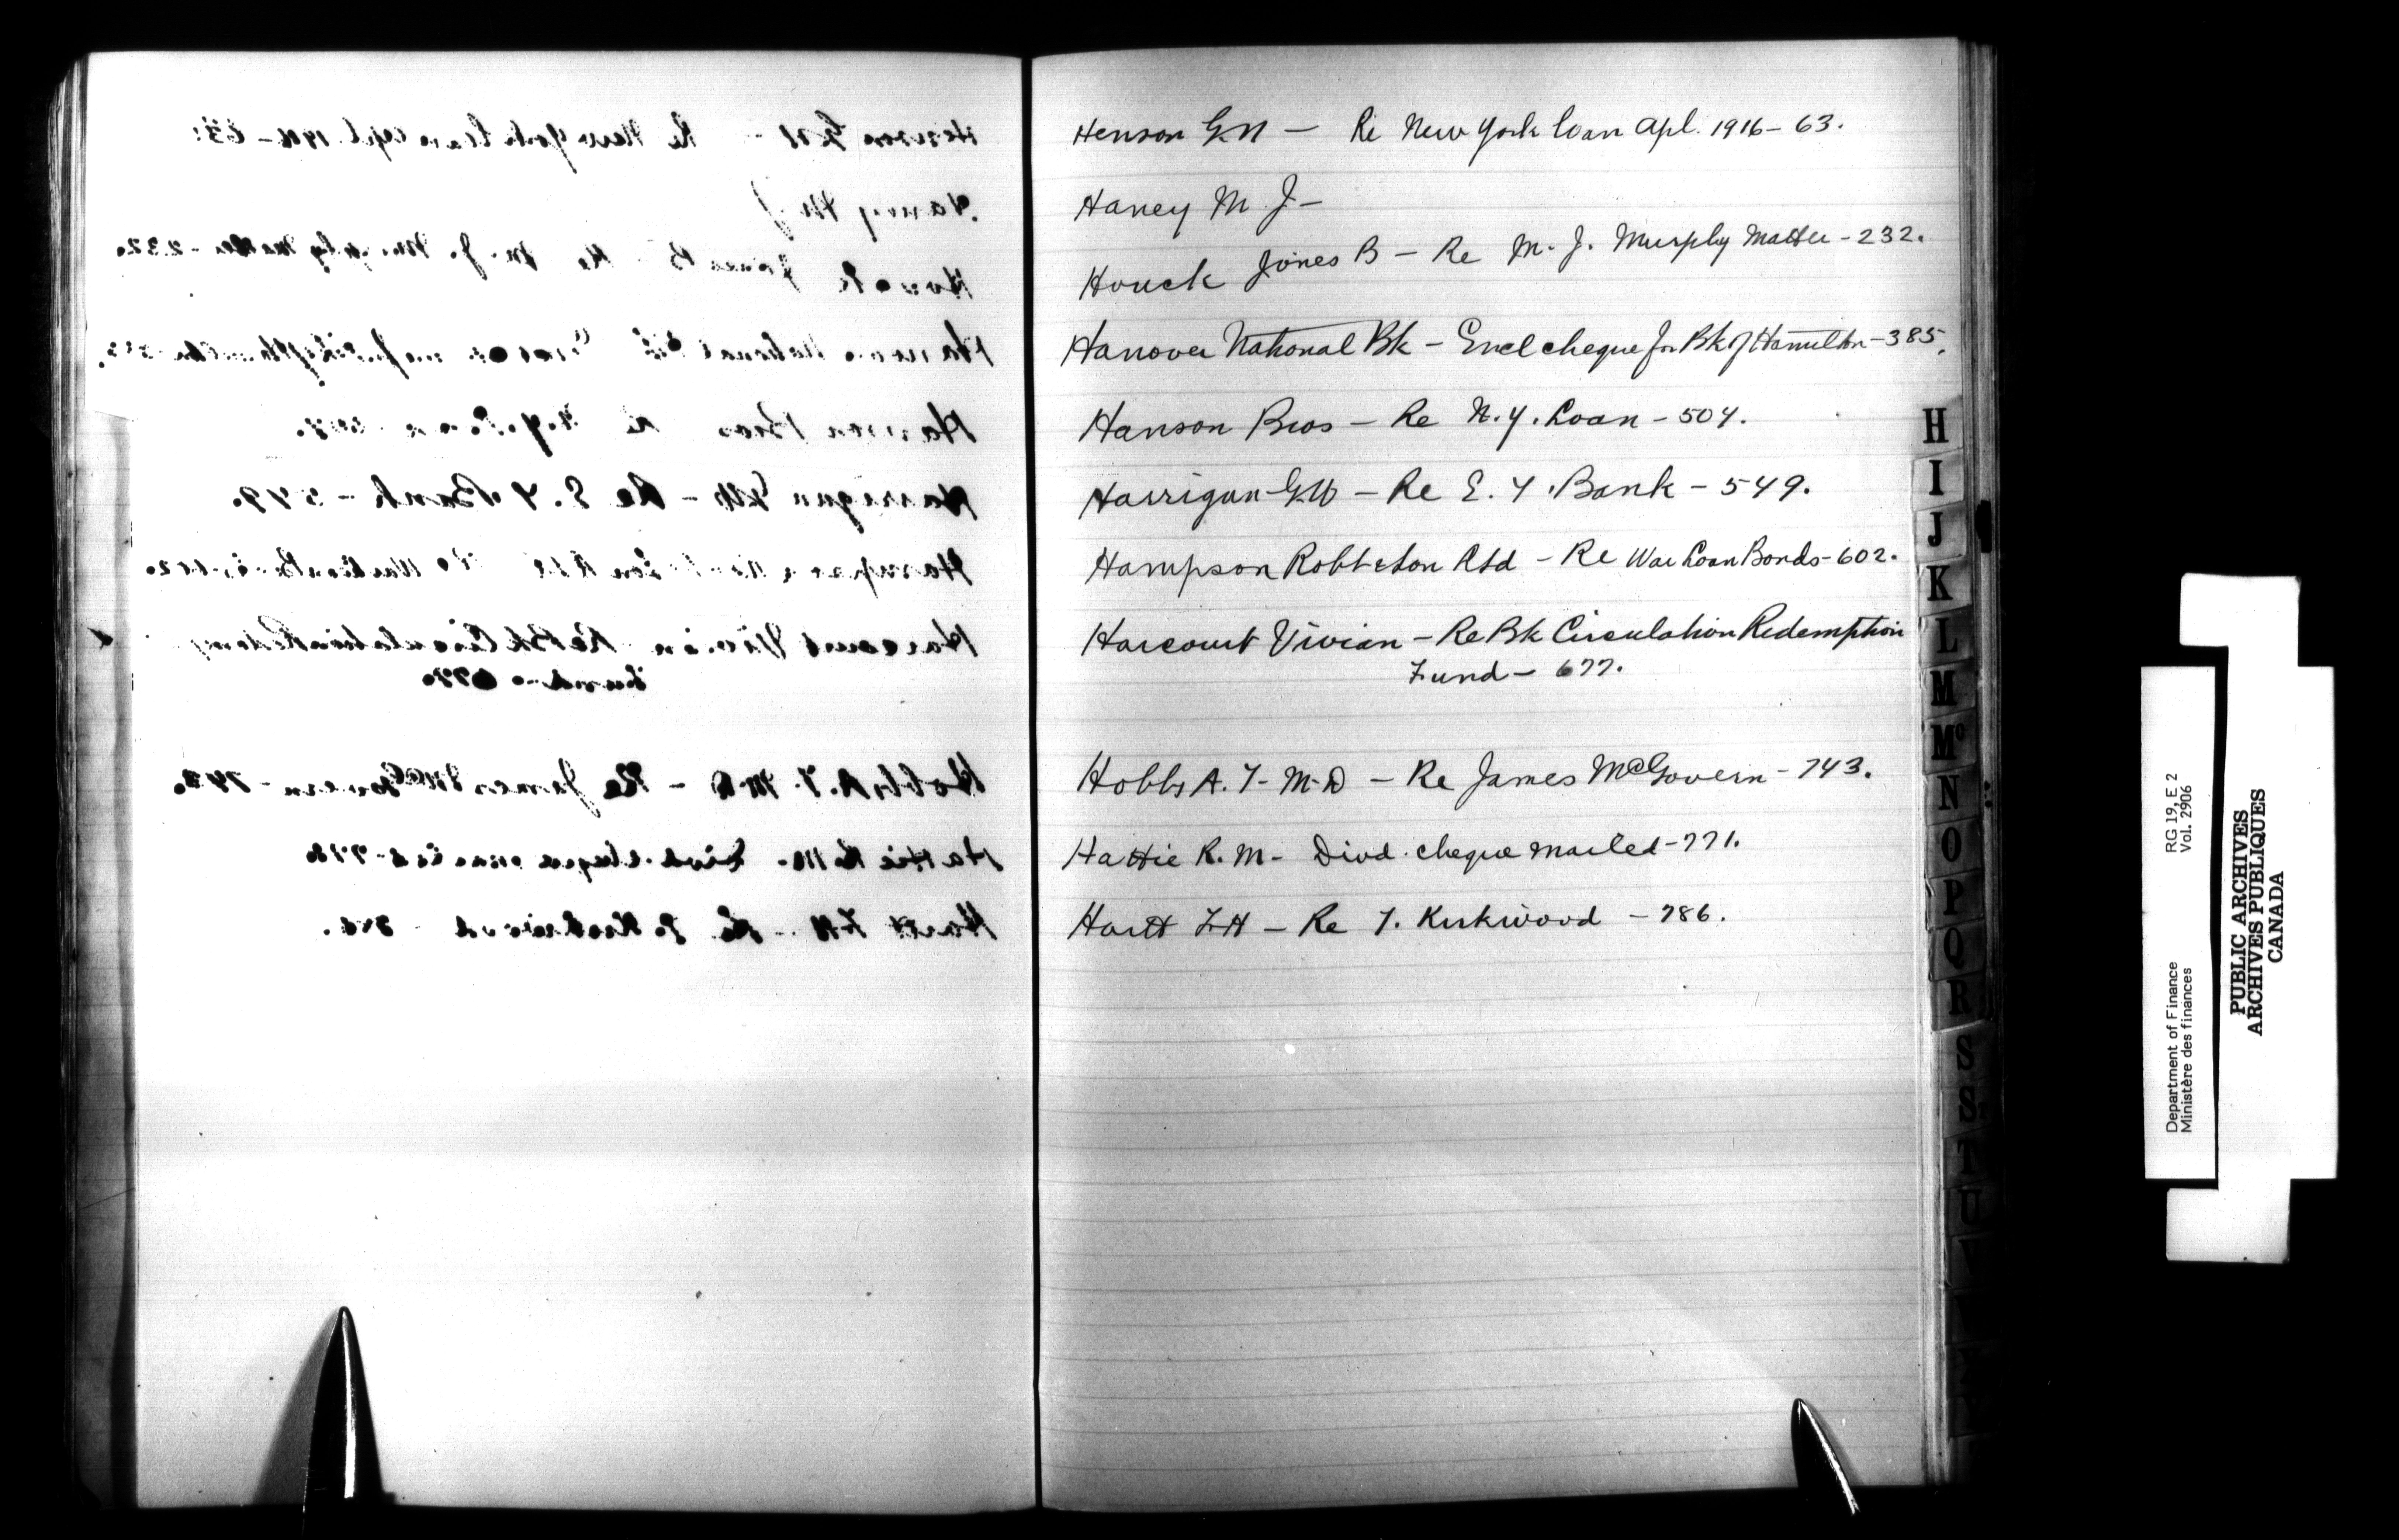 Henson G.N — Re New York loan Apl. 1916 — 63.
Haney M J —
Houck Jones B — Re M. J. Murphy Matter - 232.
Hanover National Bk — Encl cheque for Bk of Hamilton — 385.
Hanson Bros — Re N. Y. Loan - 504.
Harrigan G.W — Re E. Y. Bank - 549.
Hampson Robt & Son Ltd - Re War Loan Bonds - 602.
Harcourt Vivian — Re Bk Circulation Redemption
Fund — 677.
Hobbs A. T. M.D — Re James McGovern - 743.
Hattie R. M - Divd. cheque mailed - 771.
Hartt F H — Re T. Kirkwood — 786.
H
I
J
K
L
M
Mc
N
O
P
Q
R
S
S
T
U
Department of Finance RG 19, E 2
Ministère des finances Vol. 2906
PUBLIC ARCHIVES
ARCHIVES PUBLIQUES
CANADA